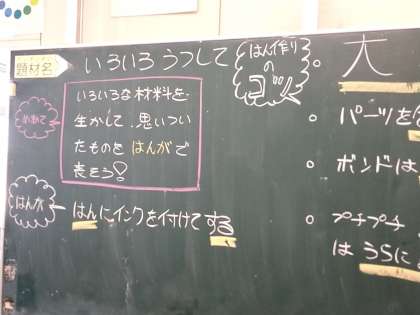 題材名
いろいろうつして
めあて
いろいろな材料を
生かして、思いつい
たものを はんがで
表そう!
はんが
はんにインクを付けてする
はん作り
の
コツ
大
パーツを
ボンドは
プチプチ
は うらに